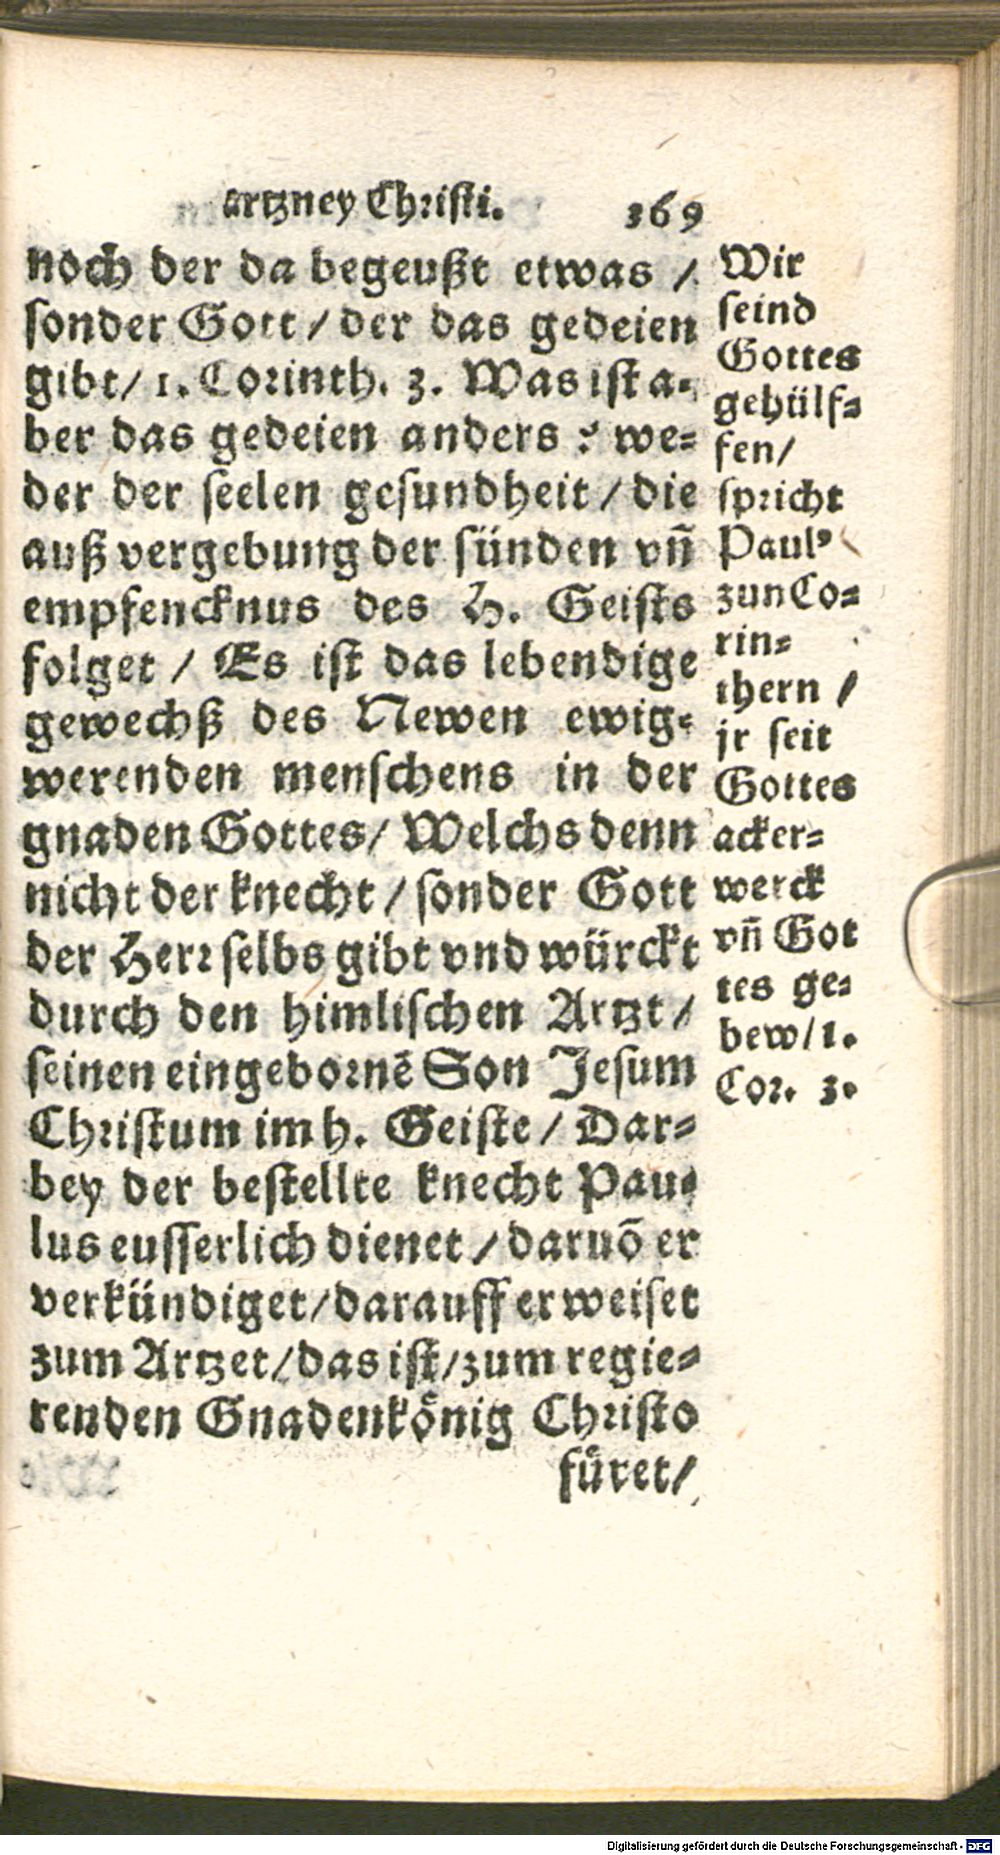 artzney Christi. 369
noch der da begeußt etwas /
sonder Gott / der das gedeien
gibt / 1. Corinth. 3. Was ist a-
ber das gedeien anders ? we-
der der seelen gesundheit / die
auß vergebung der sünden vñ
empfencknus des H. Geists
folget / Es ist das lebendige
gewechß des Newen ewig-
werenden menschens in der
gnaden Gottes / Welchs denn
nicht der knecht / sonder Gott
der Herr selbs gibt vnd würckt
durch den himlischen Artzt /
seinen eingebornẽ Son Jesum
Christum im h. Geiste / Dar-
bey der bestellte knecht Pau-
lus eusserlich dienet / daruõ er
verkündiget / darauff er weiset
zum Artzet / das ist / zum regie-
renden Gnadenkönig Christo
füret /
Wir
seind
Gottes
gehülf-
fen /
spricht
Paulꝰ
zun Co-
rin-
thern /
jr seit
Gottes
acker-
werck
vñ Got
tes ge-
bew / 1.
Cor. 3.
Digitalisierung gefördert durch die Deutsche Forschungsgemeinschaft - DFG